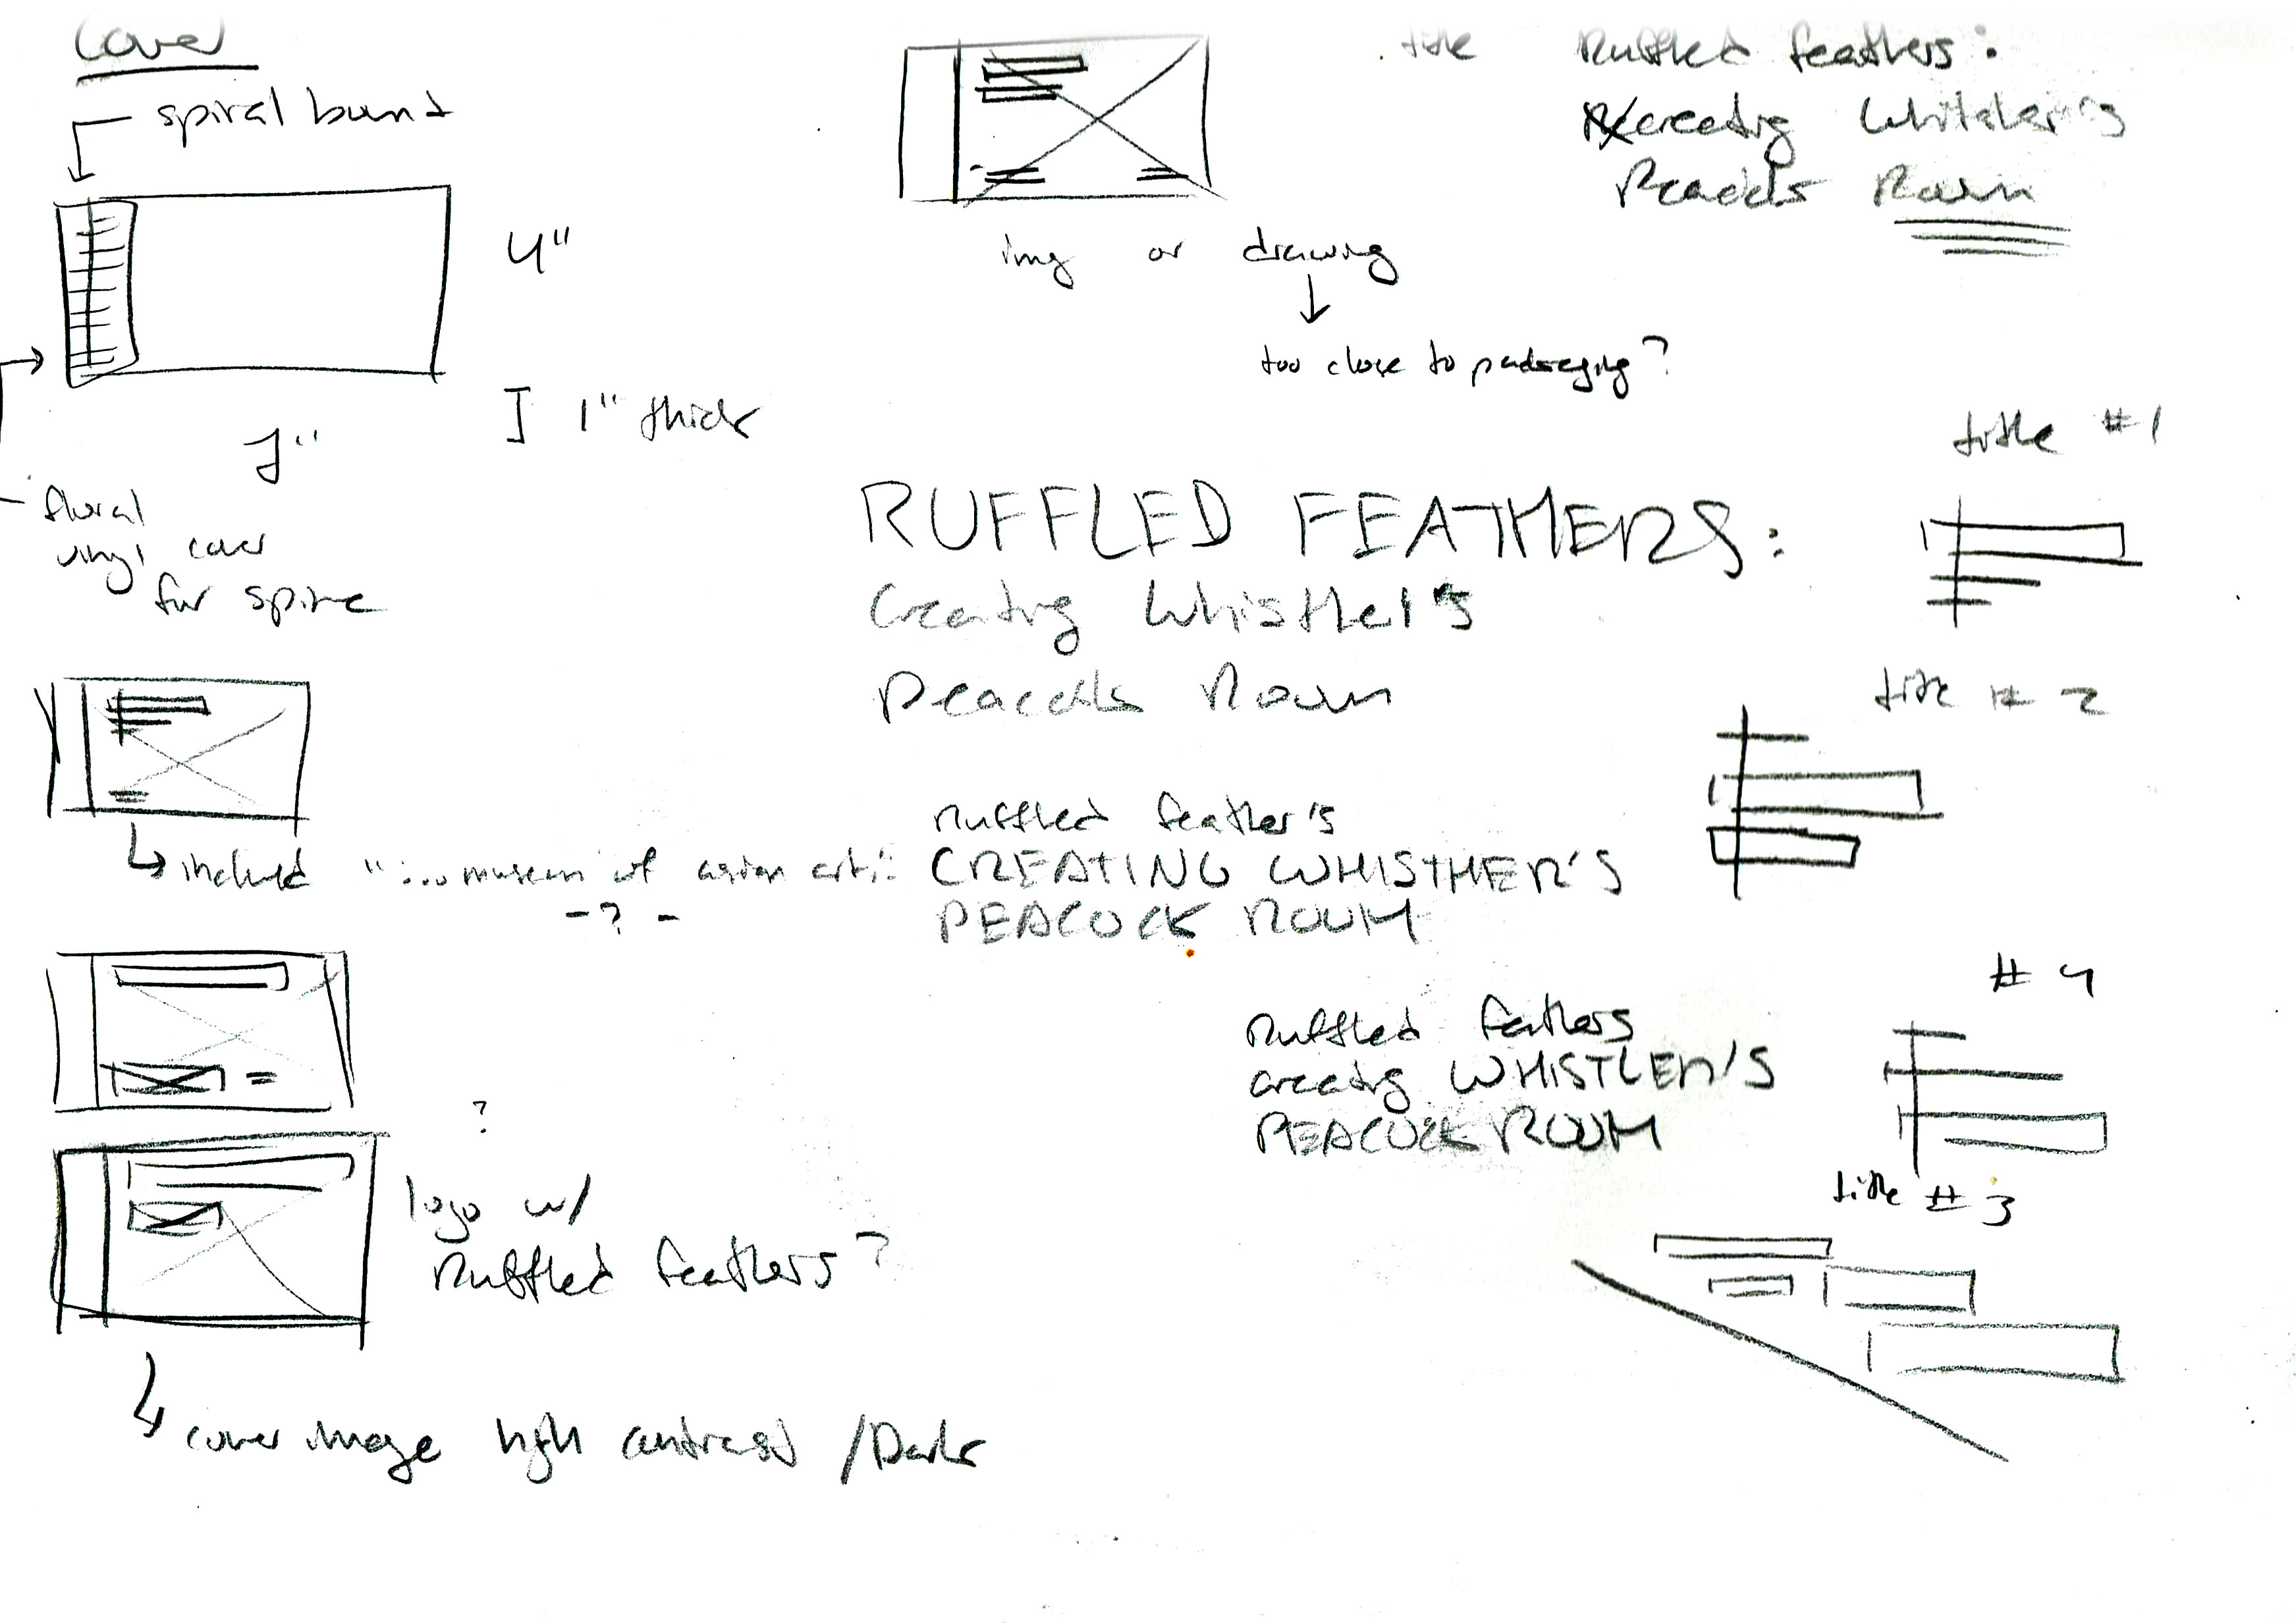 Cover
spiral bound
4"
1" thick
7"
floral
vinyl cover
for spine
included "... museum of asian art."
- ? -
?
logo w/
Ruffled feathers?
cover image high contrast / Dark
img or drawing
too close to packaging?
title Ruffled feathers:
creating Whistler's
Peacock Room
title #1
RUFFLED FEATHERS:
Creating Whistler's
Peacock Room
title # 2
Ruffled feather's
CREATING WHISTHER'S
PEACOCK ROOM
# 4
Ruffled feathers
creating WHISTLER'S
PEACOCK ROOM
title # 3